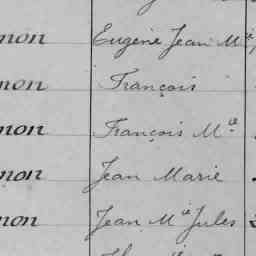 mon Eugène Jean M^ie
mon François
mon François M^ie
mon Jean Marie
mon Jean M^ie Jules